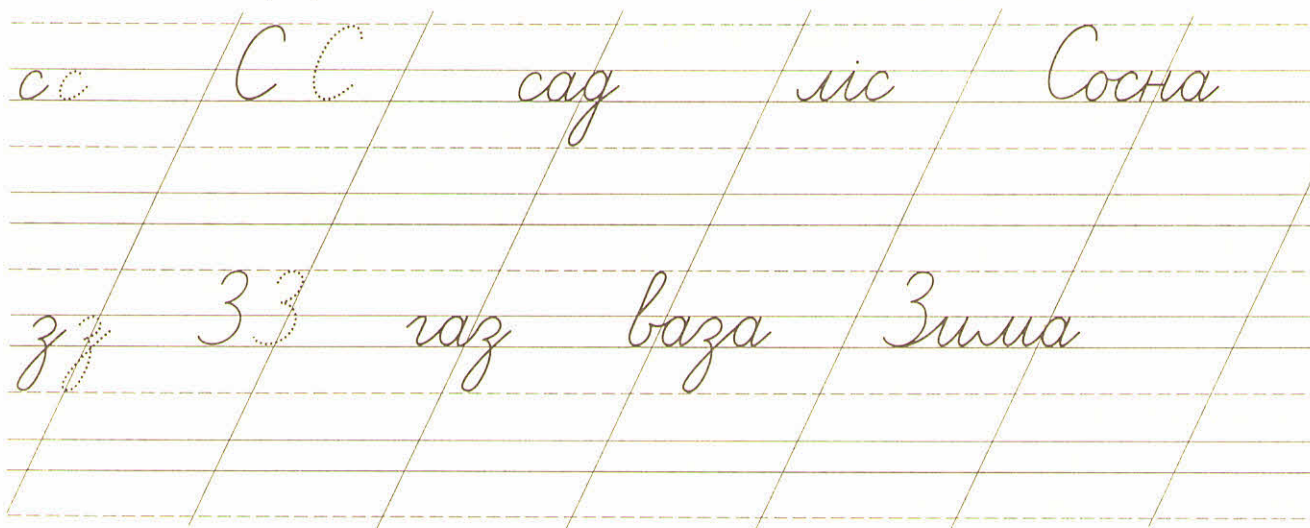 с с С С сад ліс Сосна
з з З З газ ваза Зима